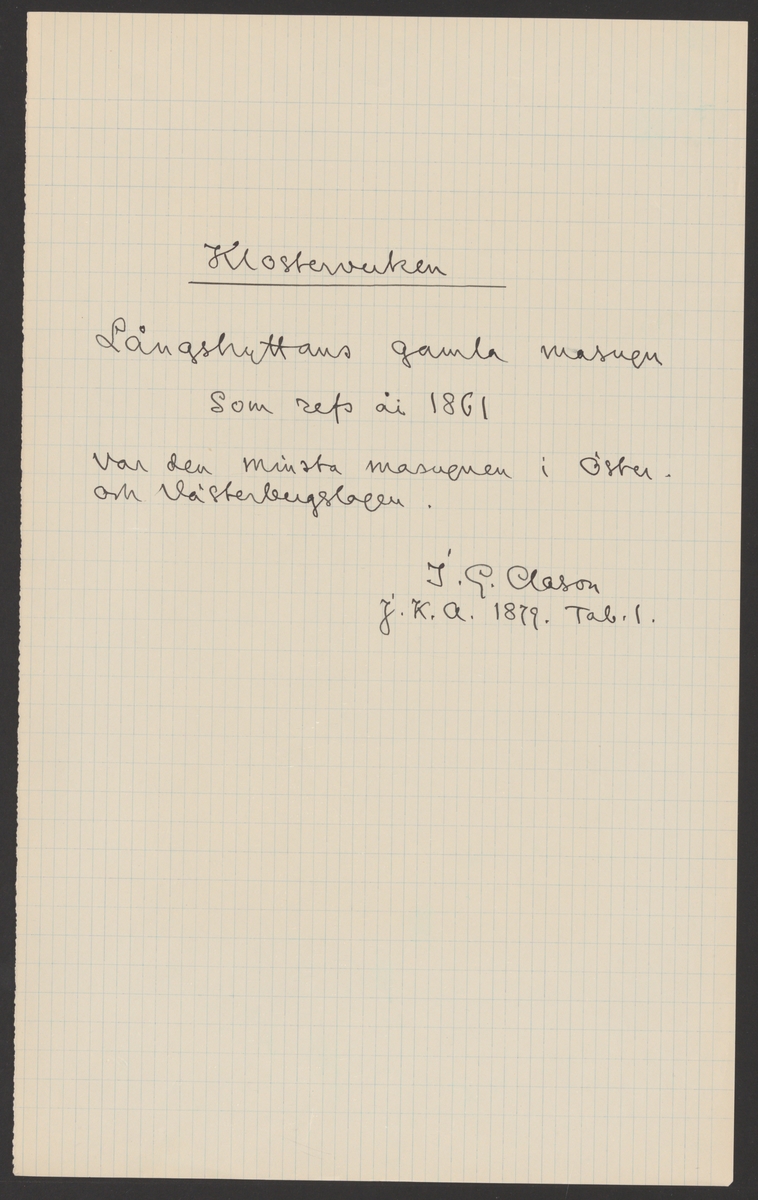 Klosterverken
Långshyttans gamla masugn
Som refs år 1861
var den minsta masugnen i Öster-
och Västerbergslagen.
I. G. Clason
J. K. A. 1879. Tab. 1.